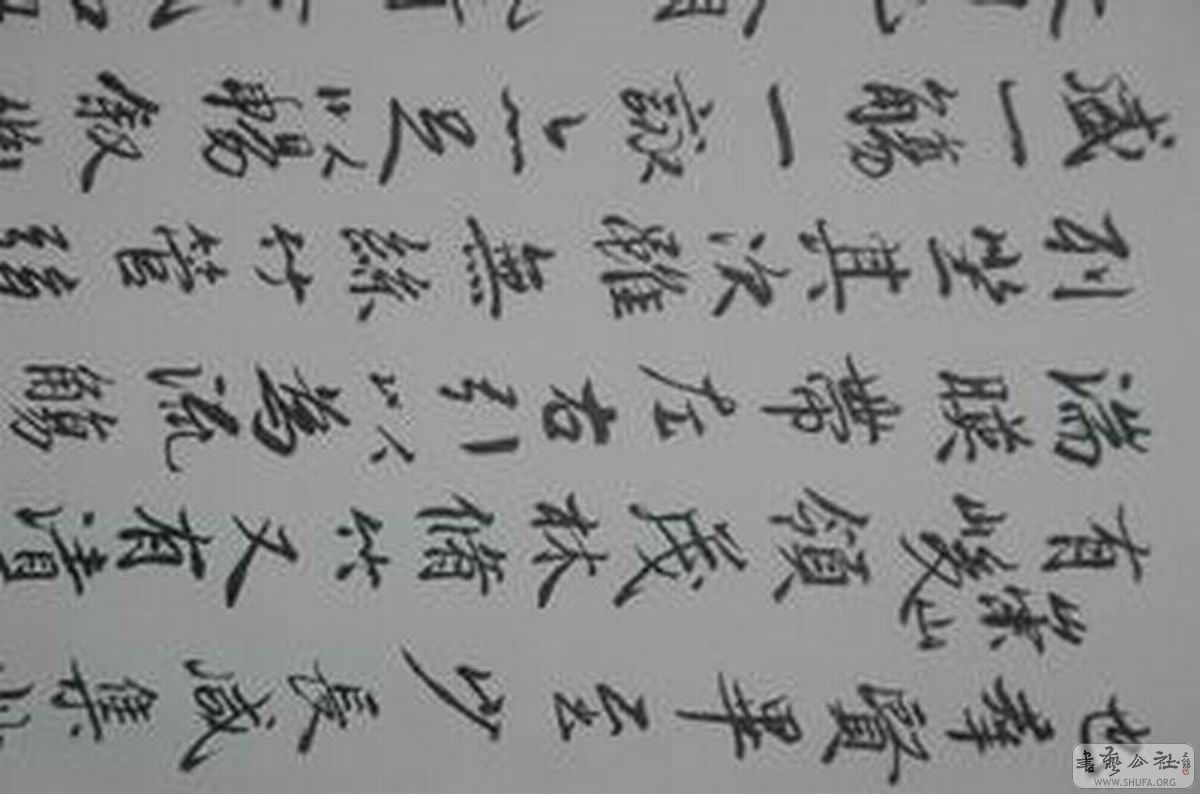 也羣賢畢至少長咸集
有崇山峻領茂林脩竹又有清
湍暎帶左右引以為流觴
列坐其次雖無絲竹管弦
盛一觴一詠亦足以暢敘幽
書藝公社
WWW.SHUFA.ORG